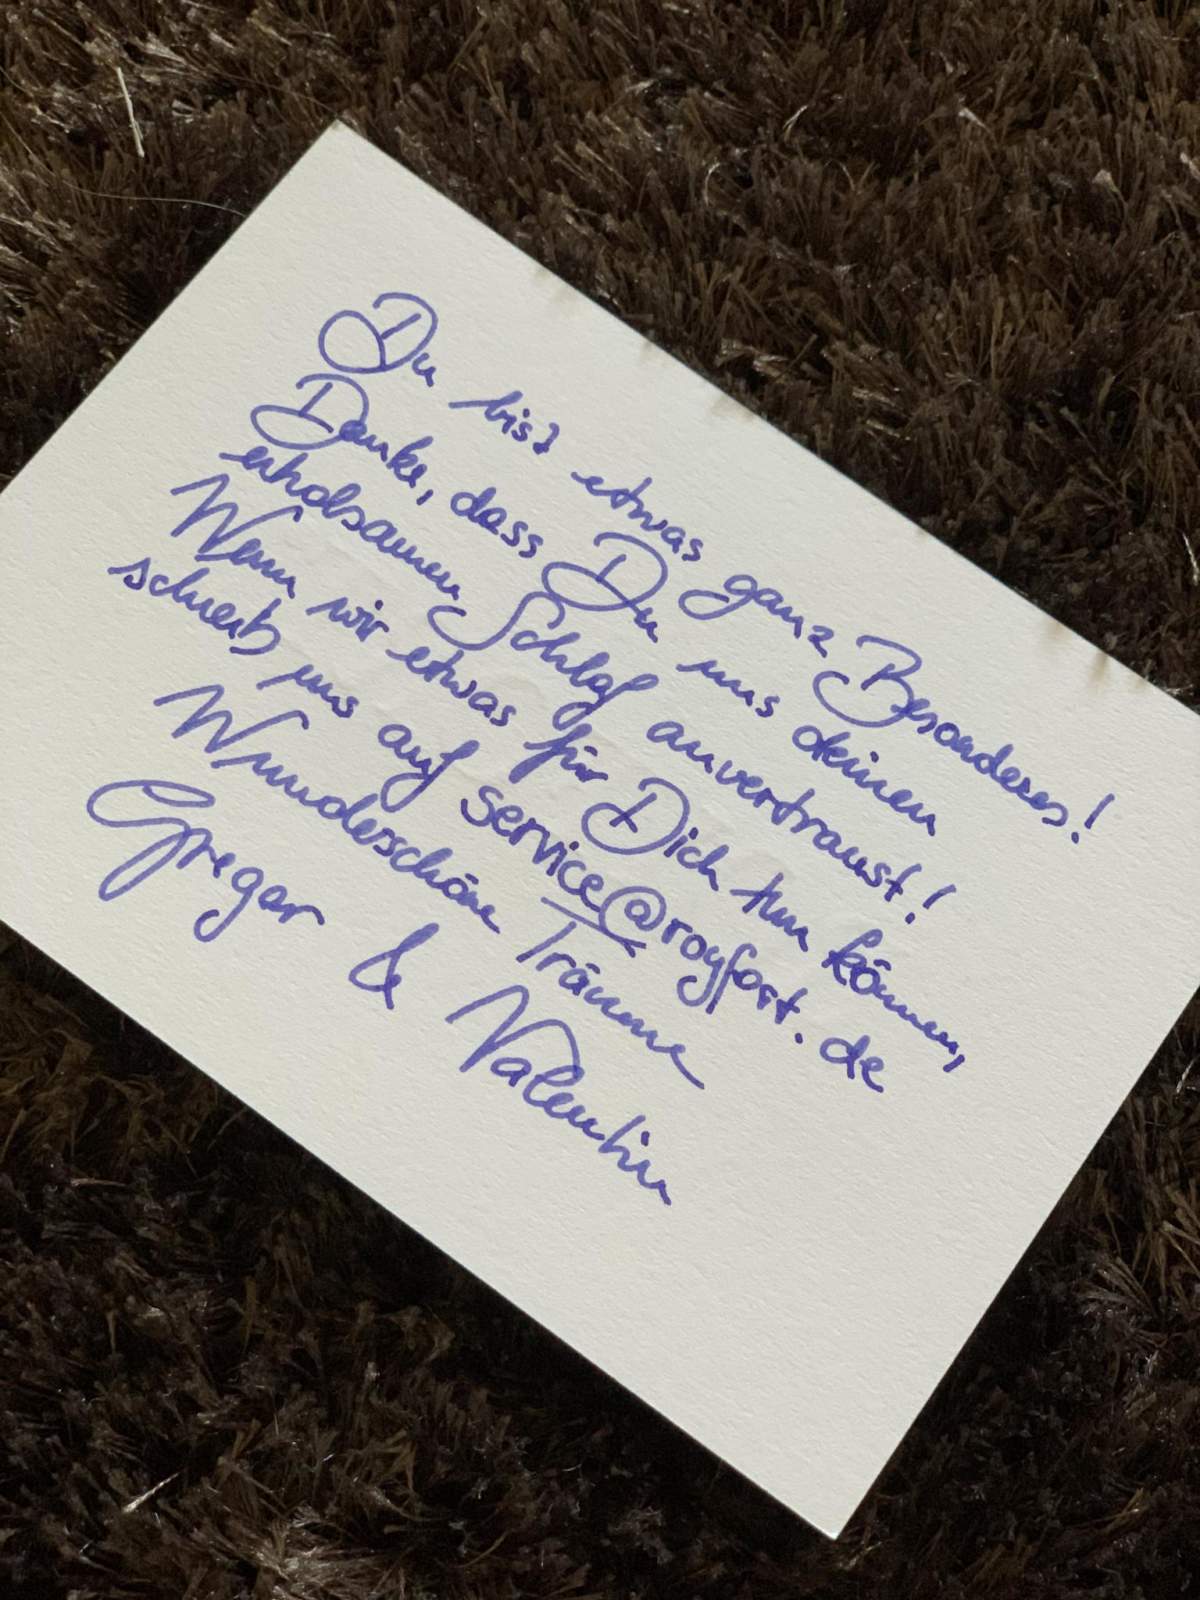 Du bist etwas ganz Besonderes!
Danke, dass Du uns deinen
erholsamen Schlaf anvertraust!
Wenn wir etwas für Dich tun können,
schreib uns auf service@royfort.de
Wunderschöne Träume
Gregor & Valentin